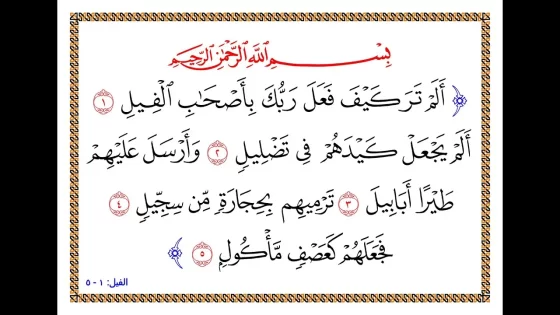 بِسْمِ ٱللَّهِ ٱلرَّحْمَٰنِ ٱلرَّحِيمِ
﴿ أَلَمْ تَرَ كَيْفَ فَعَلَ رَبُّكَ بِأَصْحَٰبِ ٱلْفِيلِ ١
أَلَمْ يَجْعَلْ كَيْدَهُمْ فِى تَضْلِيلٍ ٢ وَأَرْسَلَ عَلَيْهِمْ
طَيْرًا أَبَابِيلَ ٣ تَرْمِيهِم بِحِجَارَةٍ مِّن سِجِّيلٍ ٤
فَجَعَلَهُمْ كَعَصْفٍ مَّأْكُولٍۭ ٥ ﴾
الفيل: ١ - ٥